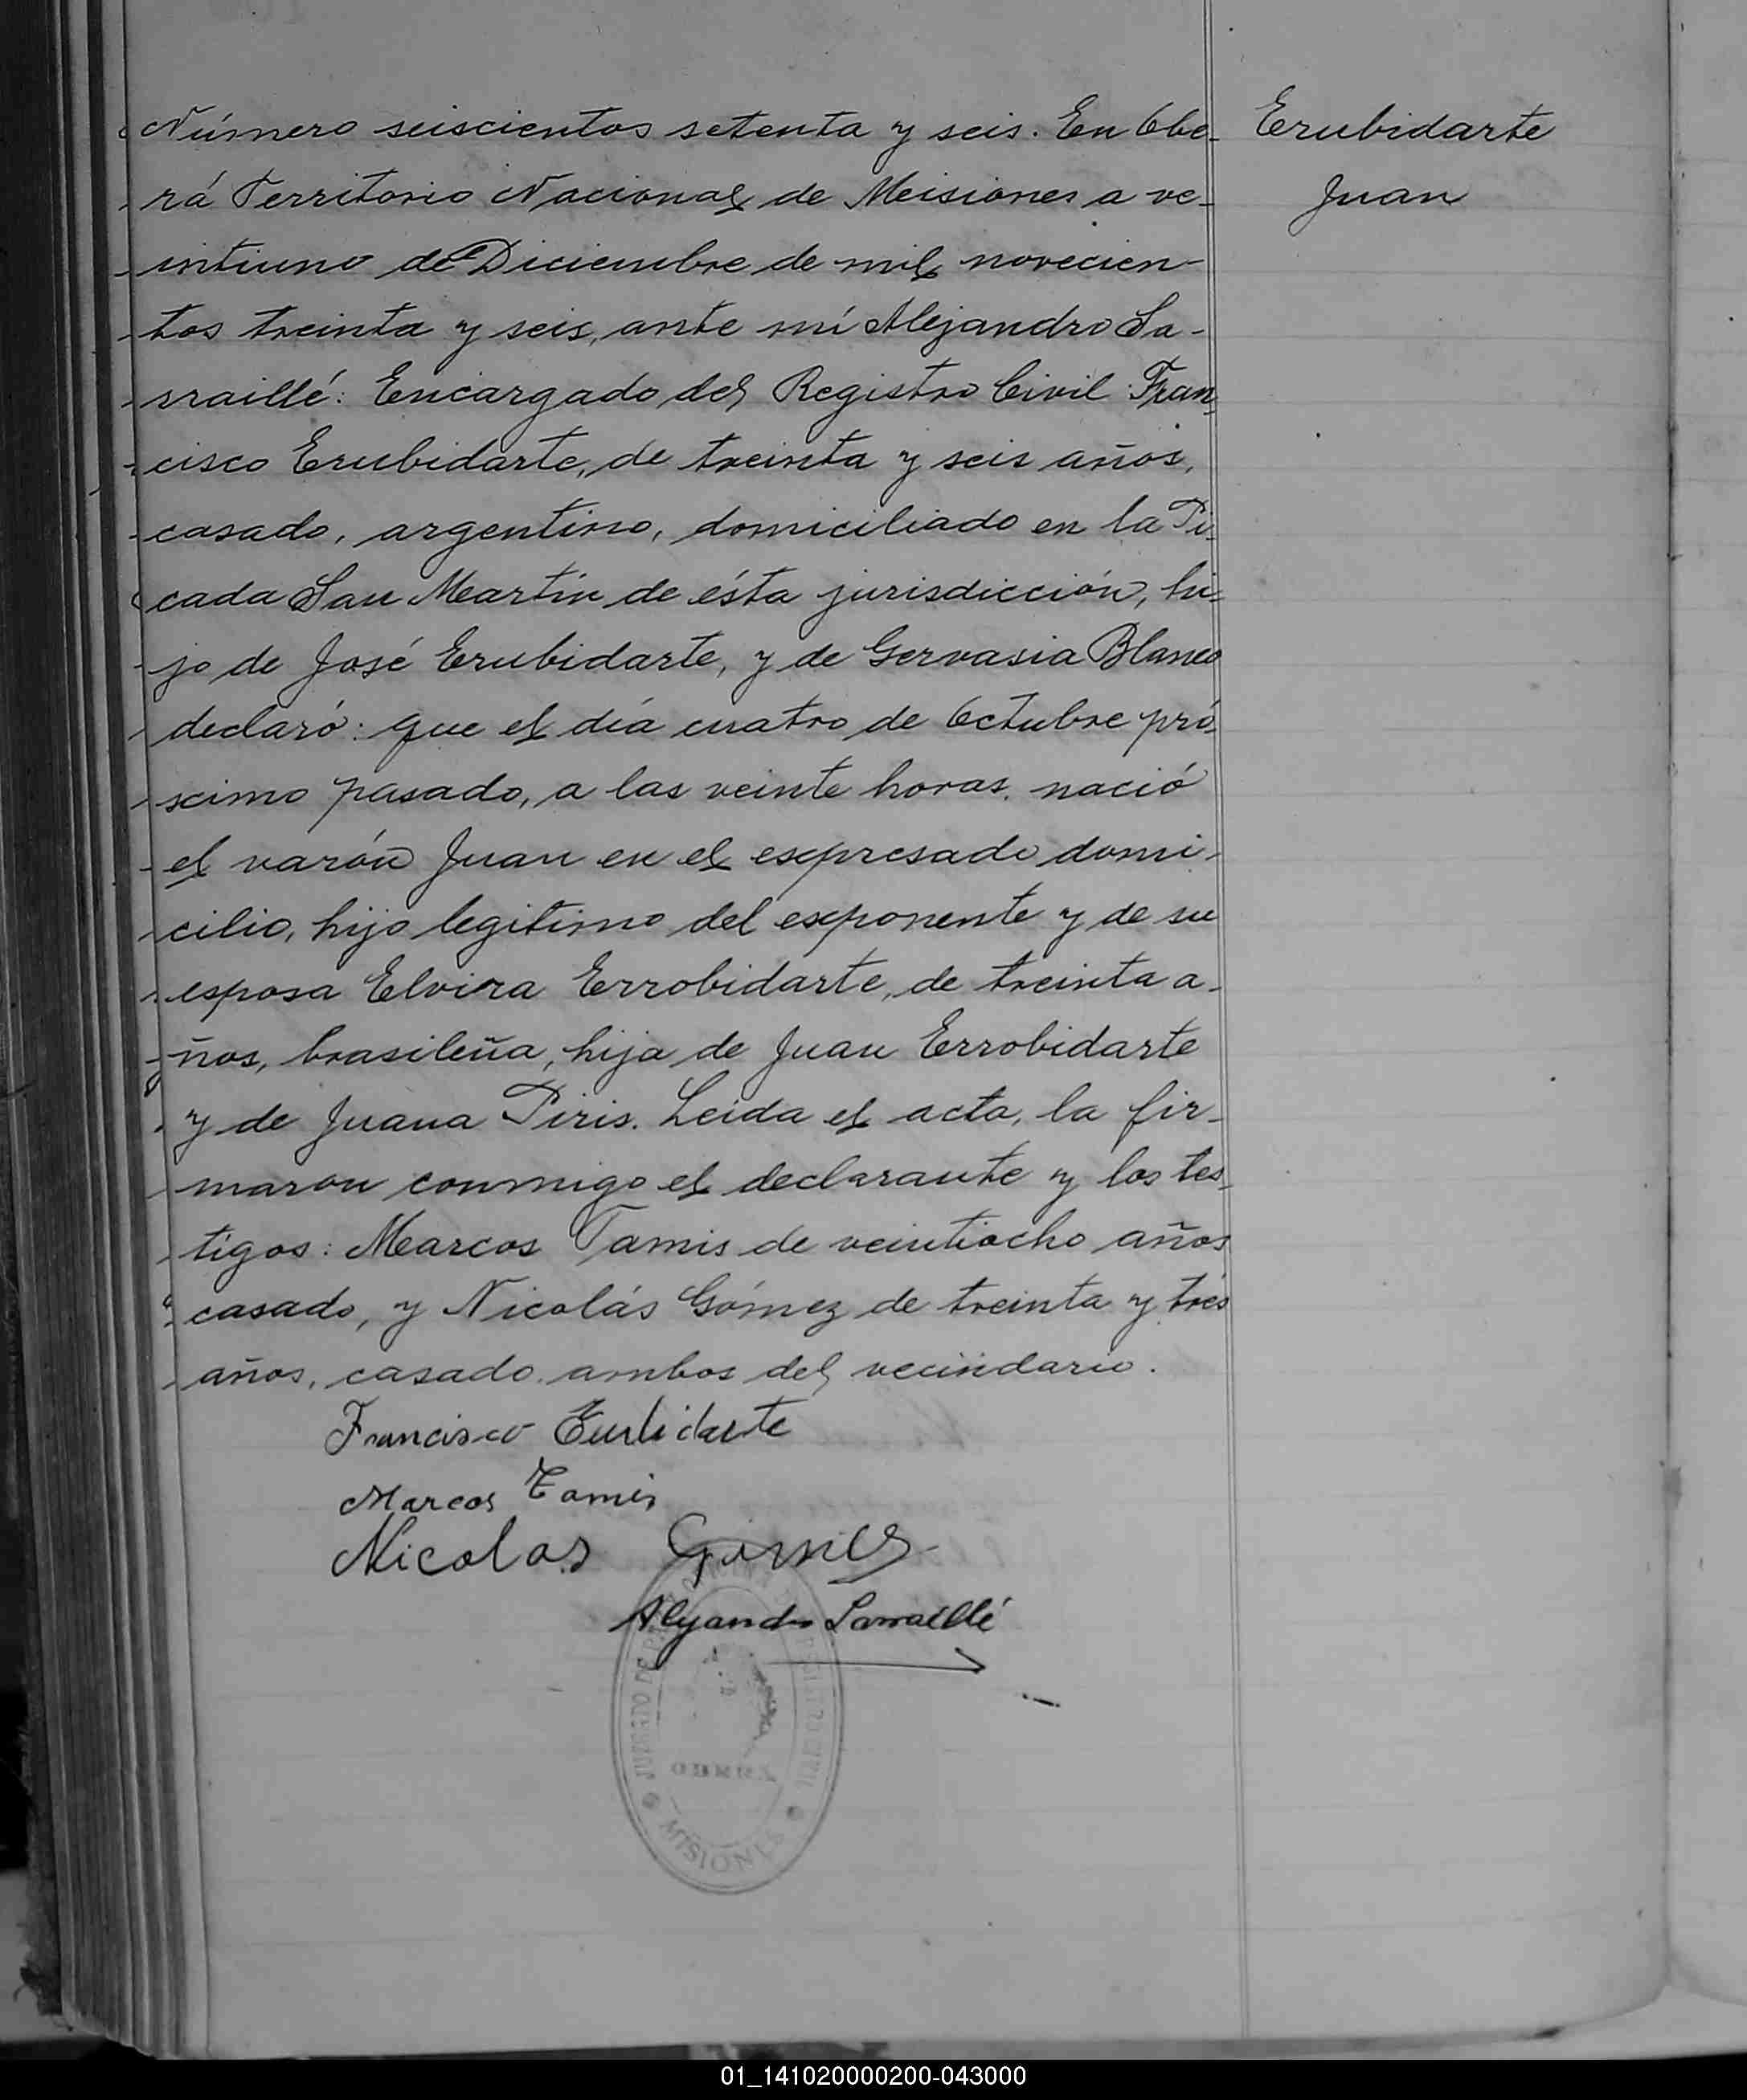 Número seiscientos setenta y seis. En Obe-
rá Territorio Nacional de Misiones a ve-
intiuno de Diciembre de mil novecien-
tos treinta y seis, ante mí Alejandro Sa-
rraillé: Encargado del Registro Civil: Fran
cisco Erubidarte, de treinta y seis años,
casado, argentino, domiciliado en la Pi-
cada San Martín de ésta jurisdicción, hi-
jo de José Erubidarte, y de Gervasia Blanco
declaró: que el día cuatro de Octubre pró-
scimo pasado, a las veinte horas, nació
el varón Juan en el expresado domi-
cilio, hijo legítimo del exponente y de su
esposa Elvira Errobidarte, de treinta a-
ños, brasileña, hija de Juan Errobidarte
y de Juana Piris. Leida el acta, la fir-
maron conmigo el declarante y los tes-
tigos: Marcos Tamis de veintiocho años
casado, y Nicolás Gómez de treinta y trés
años, casado, ambos del vecindario.
Francisco Eurbidarte
Marcos Tamis
Nicolas Gimes
Alejandro Sarraillé
JUZGADO DE PAZ
REGISTRO CIVIL
OBERA
MISIONES
Erubidarte
Juan
01_141020000200-043000